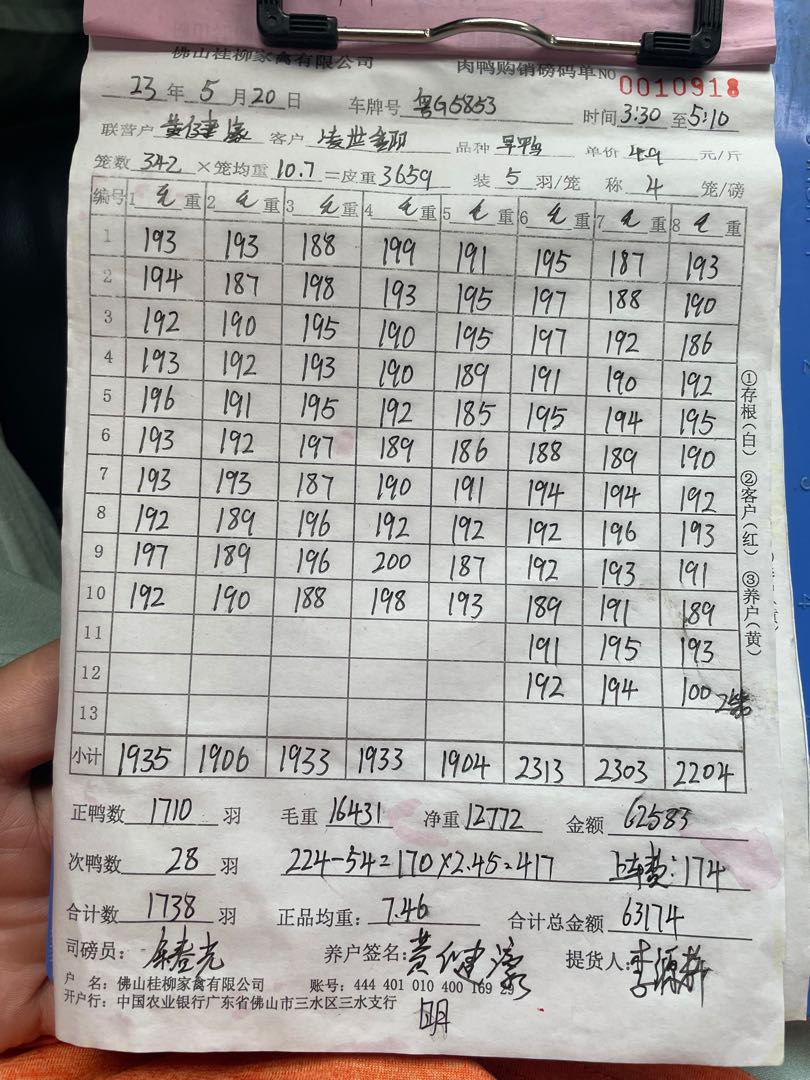 佛山桂柳家禽有限公司 肉鸭购销磅码单 NO 0010918
23年5月20日 车牌号 粤G5853 时间3:30至5:10
联营户 黄健濠 客户 品种 旱鸭 单价 4.9 元/斤
笼数 342 ×笼均重 10.7 =皮重 3659 装 5 羽/笼 称 4 笼/磅
编号 1 毛重 2 毛重 3 毛重 4 毛重 5 毛重 6 毛重 7 毛重 8 毛重
1 193 193 188 199 191 195 187 193
2 194 187 198 193 195 197 188 190
3 192 190 195 190 195 197 192 186
4 193 192 193 190 189 191 190 192
5 196 191 195 192 185 195 194 195
6 193 192 197 189 186 188 189 190
7 193 193 187 190 191 194 194 192
8 192 189 196 192 192 192 196 193
9 197 189 196 200 187 192 193 191
10 192 190 188 198 193 189 191 189
11 191 195 193
12 192 194 100 2笼
13
小计 1935 1906 1933 1933 1904 2313 2303 2204
①存根(白) ②客户(红) ③养户(黄)
正鸭数 1710 羽 毛重 16431 净重 12772 金额 62583
次鸭数 28 羽 224-54=170×2.45=417 上车费:174
合计数 1738 羽 正品均重: 7.46 合计总金额 63174
司磅员: 养户签名: 黄健濠 提货人:
户 名: 佛山桂柳家禽有限公司 账号: 444 401 010 400 169 29
开户行: 中国农业银行广东省佛山市三水区三水支行